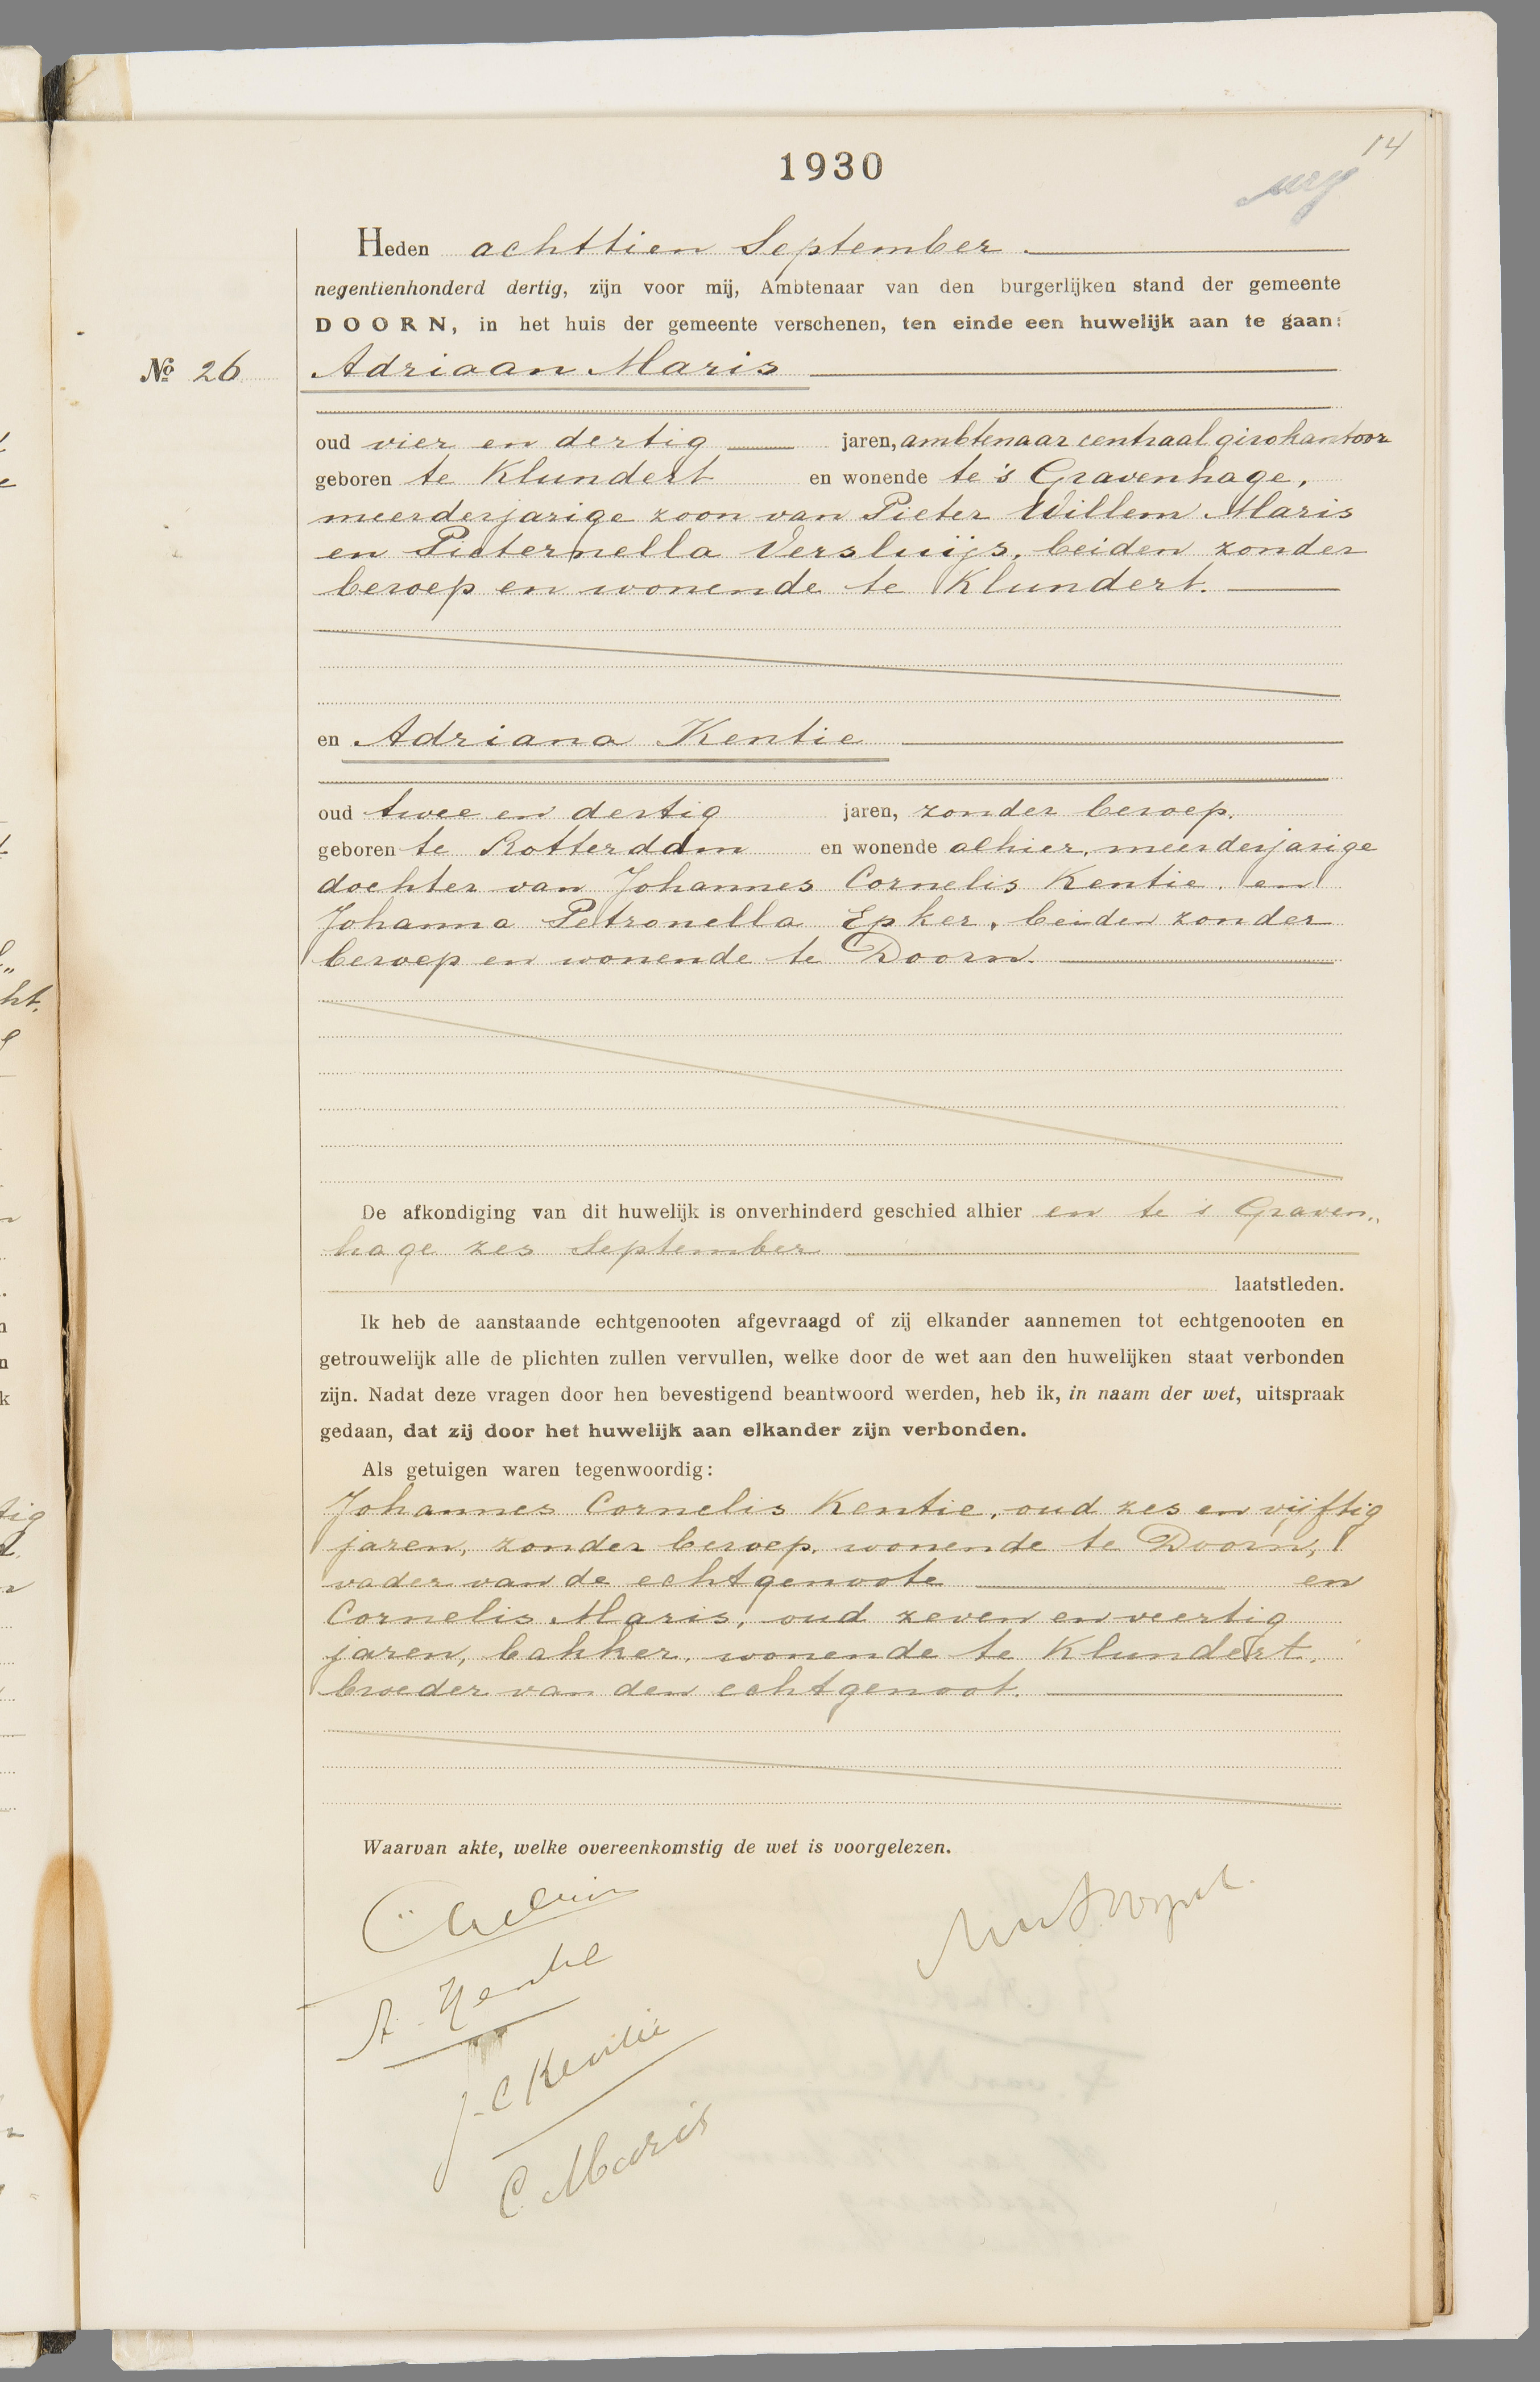 14
1930
Heden achttien September
negentienhonderd dertig, zijn voor mij, Ambtenaar van den burgerlijken stand der gemeente
DOORN, in het huis der gemeente verschenen, ten einde een huwelijk aan te gaan:
No 26 Adriaan Maris
oud vier en dertig jaren, ambtenaar centraal girokantoor
geboren te Klundert en wonende te 's Gravenhage,
meerderjarige zoon van Pieter Willem Maris
en Pieternella Versluijs, beiden zonder
beroep en wonende te Klundert.
en Adriana Kentie
oud twee en dertig jaren, zonder beroep.
geboren te Rotterdam en wonende alhier, meerderjarige
dochter van Johannes Cornelis Kentie en
Johanna Petronella Epker, beiden zonder
beroep en wonende te Doorn.
De afkondiging van dit huwelijk is onverhinderd geschied alhier en te s Graven„
hage zes September
laatstleden.
Ik heb de aanstaande echtgenooten afgevraagd of zij elkander aannemen tot echtgenooten en
getrouwelijk alle de plichten zullen vervullen, welke door de wet aan den huwelijken staat verbonden
zijn. Nadat deze vragen door hen bevestigend beantwoord werden, heb ik, in naam der wet, uitspraak
gedaan, dat zij door het huwelijk aan elkander zijn verbonden.
Als getuigen waren tegenwoordig:
Johannes Cornelis Kentie, oud zes en vijftig
jaren, zonder beroep, wonende te Doorn,
vader van de echtgenoote en
Cornelis Maris, oud zeven en veertig
jaren, bakker, wonende te Klundert,
broeder van den echtgenoot.
Waarvan akte, welke overeenkomstig de wet is voorgelezen.
A. Kentie
J. C. Kentie
C. Maris